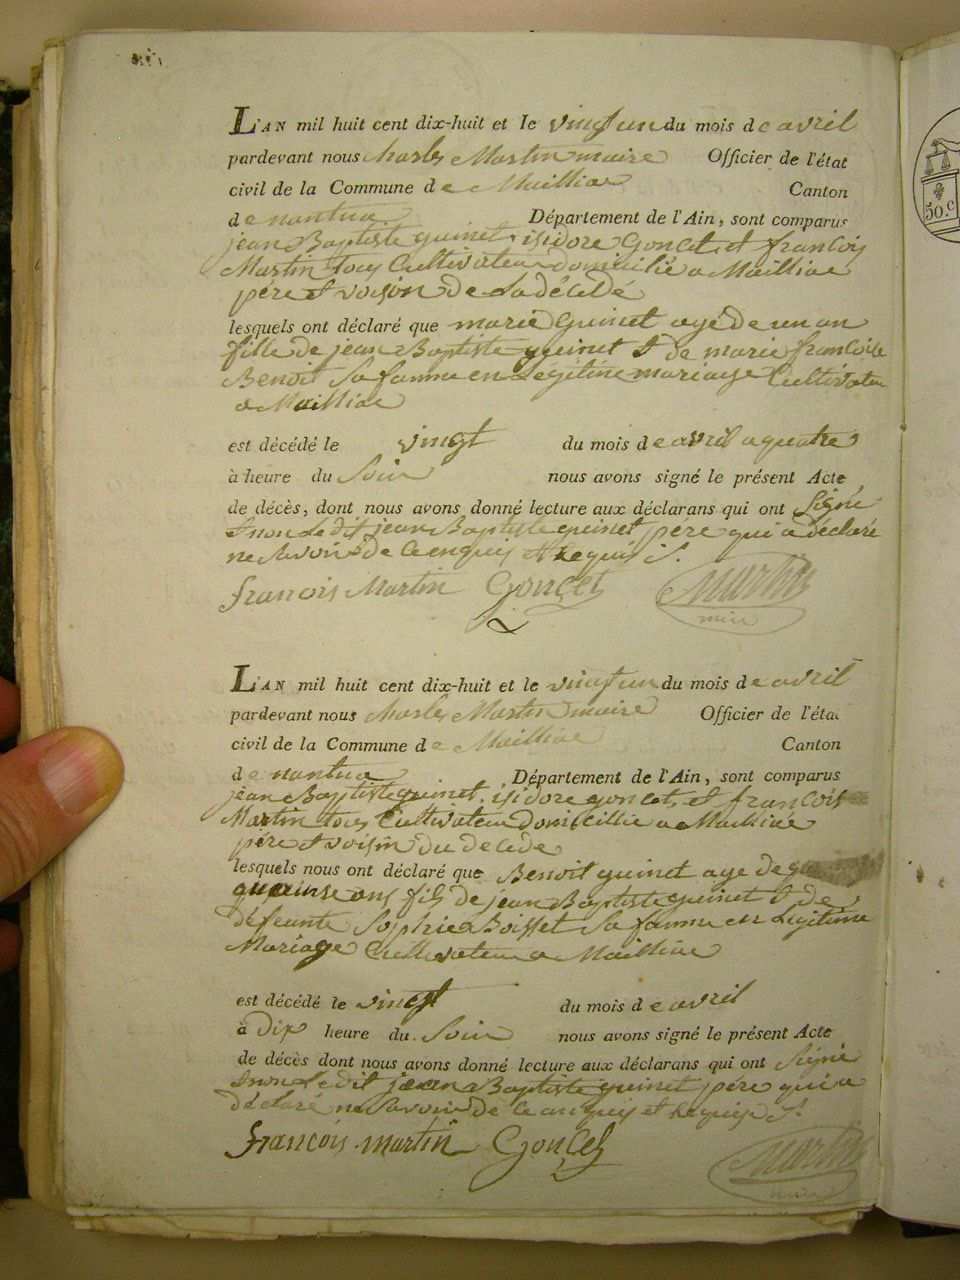 L'AN mil huit cent dix-huit et le vingt un du mois de avril
pardevant nous charles Martin maire Officier de l'état
civil de la Commune de Maillia Canton
de nantua Département de l'Ain, sont comparus
jean Baptiste guinet, isidore Goncet et francois
Martin tous Cultivateur domicilié a Maillia
pére et voison de la décédé
lesquels ont déclaré que marie Guinet agé de un an
fille de jean Baptiste guinet & de marie francoise
Benoit sa famme en Legitime mariage Cultivateu
a Maillia
est décédé le vingt du mois de avril a quatre
à heure du Soir nous avons signé le présent Acte
de décès, dont nous avons donné lecture aux déclarans qui ont Signé
& non Le dit jean Baptiste guinet pére qui a déclaré
ne Savoir de ce enquis et Requis S.
francois Martin Gonçet Martin
mire
L'AN mil huit cent dix-huit et le vingt un du mois de avril
pardevant nous charles Martin maire Officier de l'état
civil de la Commune de Maillia Canton
de nantua Département de l'Ain, sont comparus
jean Baptiste guinet, isidore goncet et francois
Martin tous Cultivateur domicillie a Maillia
pére et voisin du decede
lesquels nous ont déclaré que Benoit guinet age de
quainse ans fils de jean Baptiste guinet & de
défeunte Sophie Boisset Sa famme en Legitime
Mariage Cultivateu a Maillia
est décédé le vingt du mois de avril
à Dix heure du Soir nous avons signé le présent Acte
de décès dont nous avons donné lecture aux déclarans qui ont Signé
& non Le dit jean Baptiste guinet pére qui a
déclaré ne Savoir de ce anquis et Requis S.
francois martin Gonçet Martin
mire
50.c